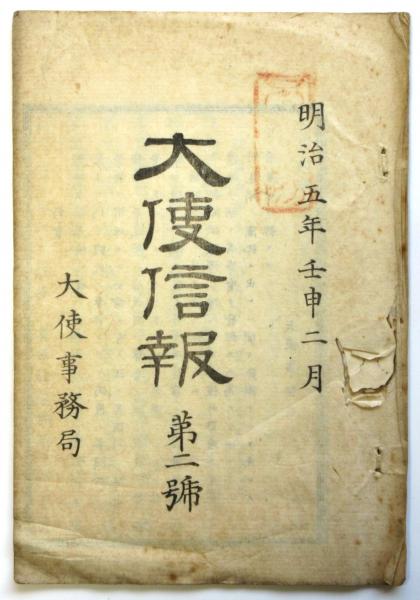 明治五年壬申二月
大使信報
第二號
大使事務局